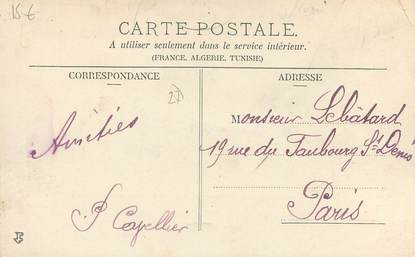 15 €
CARTE POSTALE.
A utiliser seulement dans le service intérieur.
(FRANCE, ALGERIE, TUNISIE)
CORRESPONDANCE
ADRESSE
27
Amitiés
P Capellier
Monsieur Lebâtard
19 rue du Faubourg St Denis
Paris